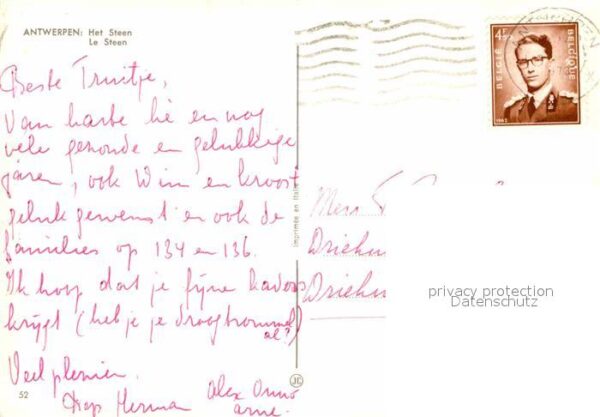 ANTWERPEN: Het Steen
Le Steen
Beste Truitje,
Van harte hé en nog
vele gezonde en gelukkige
jaren, ook Wim en kroost
geluk gewenst en ook de
families op 134 en 136.
Ik hoop dat je fijne kados
krijgt (heb je je droogtrommel
al?)
Veel plezier.
Herman
Alex Anno
Arne.
52
Imprimée en Italie
JC
4F50
BELGIE
BELGIQUE
1962
Driehu
Driehu
privacy protection
Datenschutz